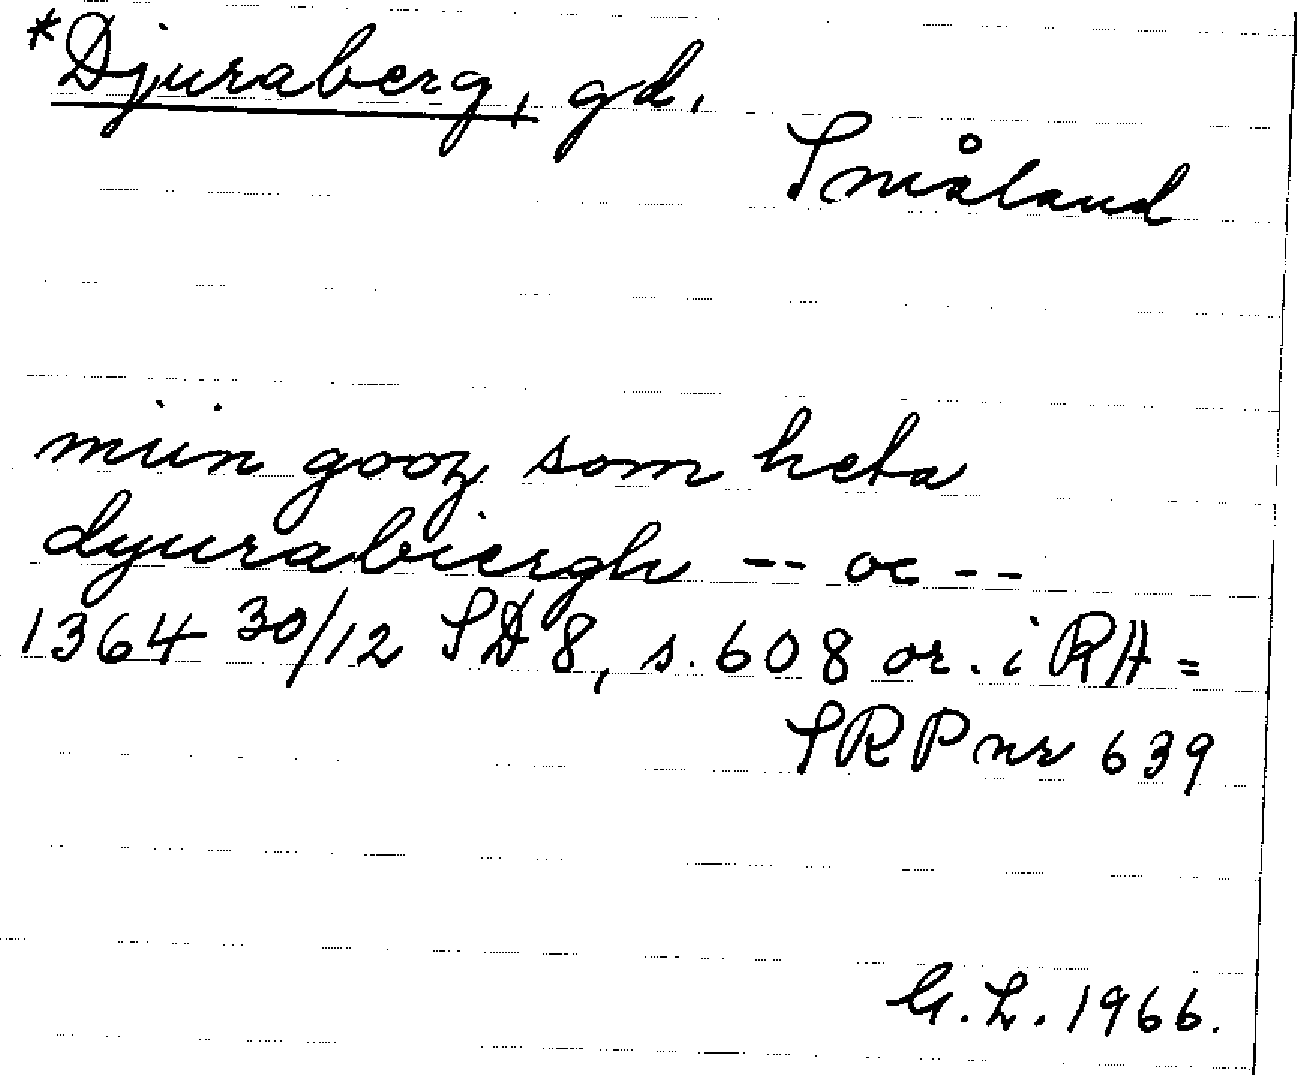 *Djuraberg, gd.
Småland
miin gooz som heta
dyurabiergh -- oc --
1364 30/12 SD 8, s. 608 or. i RA =
SRP nr 639
G.L. 1966.